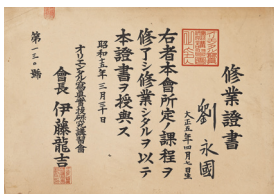 修業證書
劉永國
大正五年四月七日生
右者本會所定ノ課程ヲ
修了シ修業シタルヲ以テ
本證書ヲ授與ス
昭和十五年三月三十日
オリエンタル寫眞實技研究講習會
會長 伊藤龍吉
第一三〇號